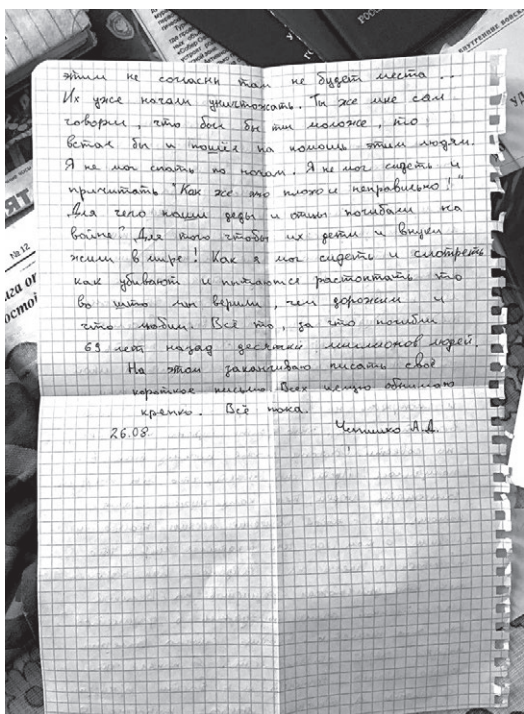 РОССИ
ВНУТРЕННИЕ ВОЙСКА
этим не согласны там не будет места . .
Их уже начали уничтожать. Ты же мне сам
говорил, что был бы ты моложе, то
встал бы и пошёл на помощь этим людям.
Я не мог спать по ночам. Я не мог сидеть и
причитать "Как же это плохо и неправильно!"
Для чего наши деды и отцы погибали на
войне? Для того чтобы их дети и внуки
жили в мире! Как я мог сидеть и смотреть
как убивают и пытаются растоптать то
во што мы верили, чем дорожим и
что любим. Всё то, за что погибли
69 лет назад десятки миллионов людей.
На этом заканчиваю писать своё
короткое письмо Всех целую обнимаю
крепко. Всё пока.
26.08
А.Д.
№ 12